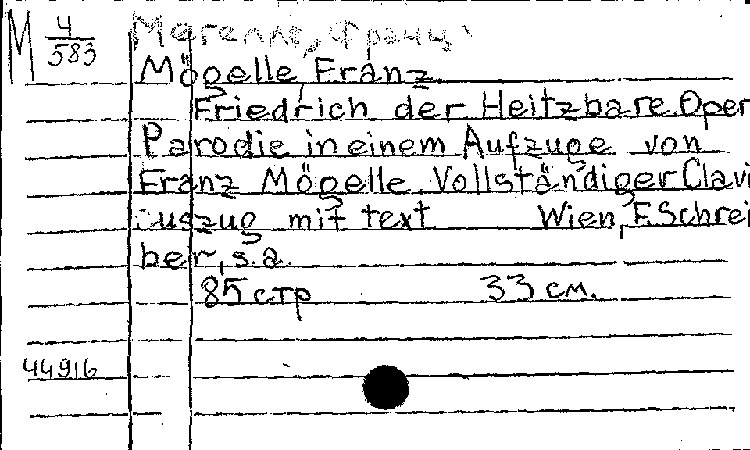 М 4/583
Мегелле, Франц.
Mögelle, Franz.
Friedrich der Heitzbare. Oper
Parodie in einem Aufzuge von
Franz Mögelle. Vollständiger Clavi
auszug mit text Wien, F. Schrei
ber, s.a.
85 стр 33 см.
44916